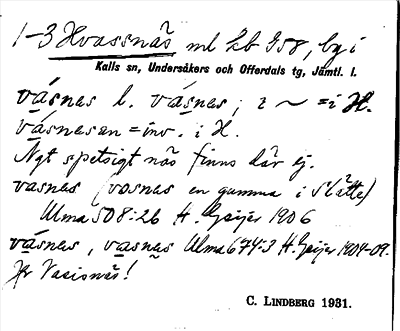 1-3 Hvassnäs ml kb 958, by i
Kalls sn, Undersåkers och Offerdals tg, Jämtl. l.
vásnas l. vásnes; i ~ = i H.
vásnesan = inv. i H.
Ngt spetsigt näs finns där ej.
vasnes (vosnes en gumma i Slätte)
Ulma 508:26 H. Geijer 1906
vásnes, vasnes Ulma 674:3 H. Geijer 1904-09.
Jfr Vasisnäs!
C. LINDBERG 1931.